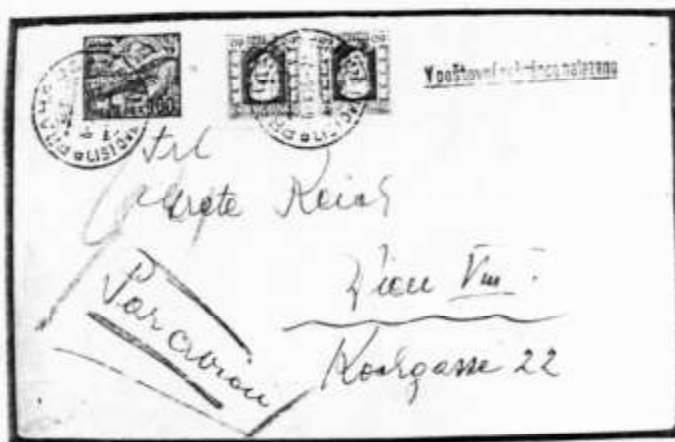 V poštovní schránce nalezeno
PRAHA
Frl
Grete Reich
Wien VIII.
Kochgasse 22
Par avion